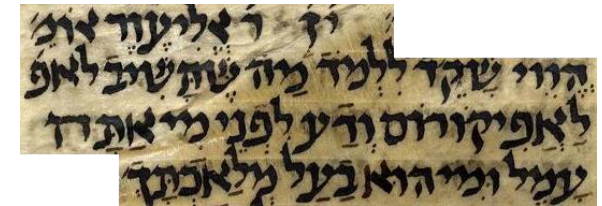 ר אליעזר אומ׳
הֶווִי שָׁקֵד לִלְמֹד מַה שֶּׁתָּשִׁיב לאפ
לְאַפִּיקוֹרוֹס וְדַע לִפְנֵי מִי
עָמֵל וּמִי הוּא בַּעַל מְלַאכְתָּךְ